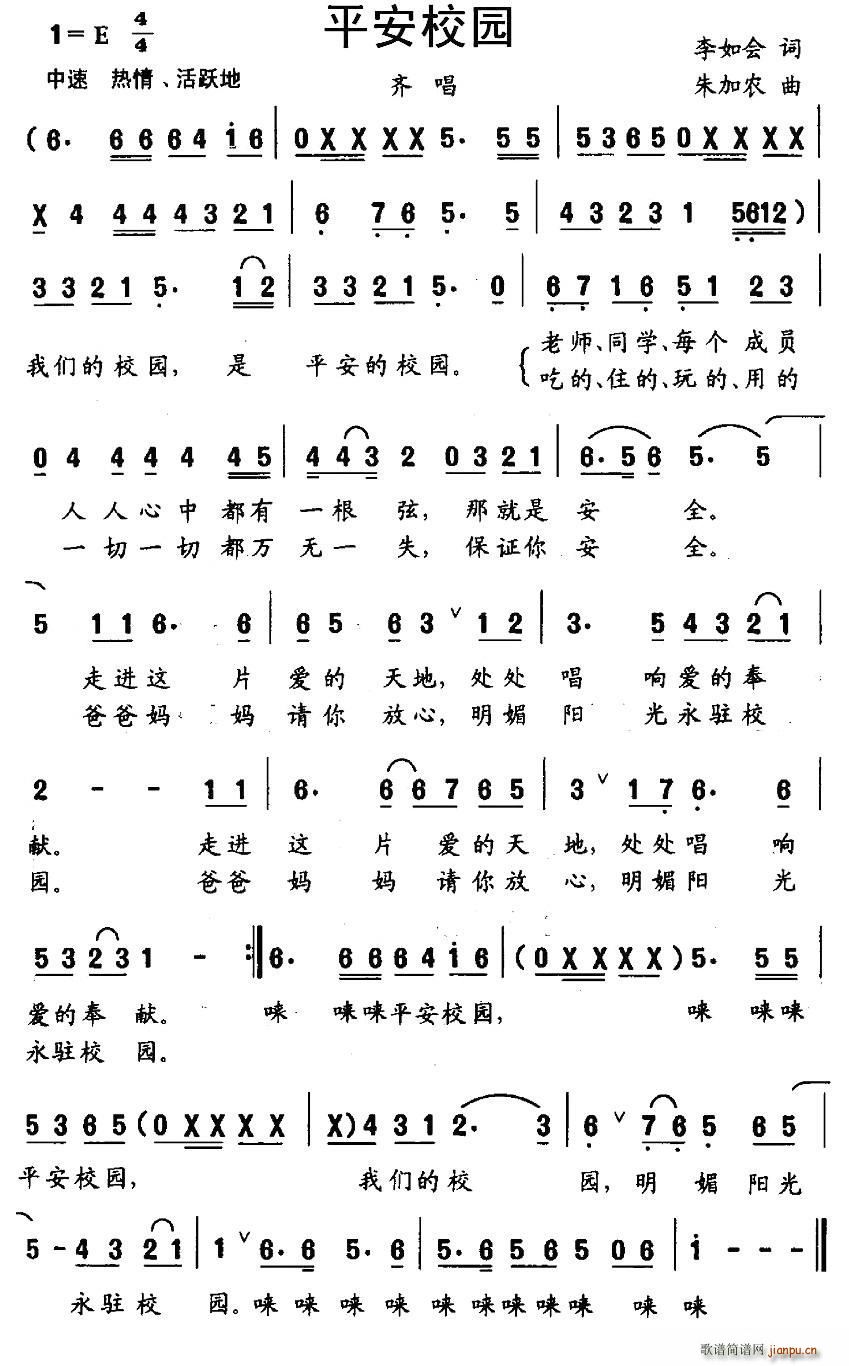 平安校园
1=E 4/4
李如会 词
中速 热情、活跃地
齐 唱
朱加农 曲
(6. 66 64 i6 | 0XX XX 5. 55 | 53 65 0XX XX |
X 4 44 43 21 | 6 76 5. 5 | 43 23 1 5612)
33 21 5. 12 | 33 21 5. 0 | 67 16 51 23 |
老师、同学、每个 成员
我们的校园, 是 平安的校园。
吃的、住的、玩的、用的
0 4 4 4 4 45 | 4 43 2 03 21 | 6. 5 6 5. 5 |
人人心中都有一根弦, 那就是安 全。
一切一切都万无一失, 保证你安 全。
5 11 6. 6 | 65 63 ∨ 12 | 3. 5 43 21 |
走进这 片爱的天地, 处处唱 响爱的奉
爸爸妈 妈请你放心, 明媚阳 光永驻校
2 - - 11 | 6. 6 67 65 | 3 ∨ 17 6. 6
献。 走进这 片爱的天地, 处处唱 响
园。 爸爸妈 妈请你放心, 明媚阳 光
53 23 1 - :| 6. 66 64 i6 | (0XX XX) 5. 55 |
爱的奉 献。 唻 唻唻平安校园, 唻 唻唻
永驻校 园。
53 65 (0XX XX | X) 4 31 2. 3 | 6 ∨ 76 5 65 |
平安校园, 我们的校 园, 明 媚 阳光
5 - 43 21 | 1 ∨ 6. 6 5. 6 | 5. 6 56 5 06 | i - - - ‖
永驻校 园。唻 唻 唻 唻 唻 唻唻唻唻 唻 唻
歌谱简谱网 jianpu.cn